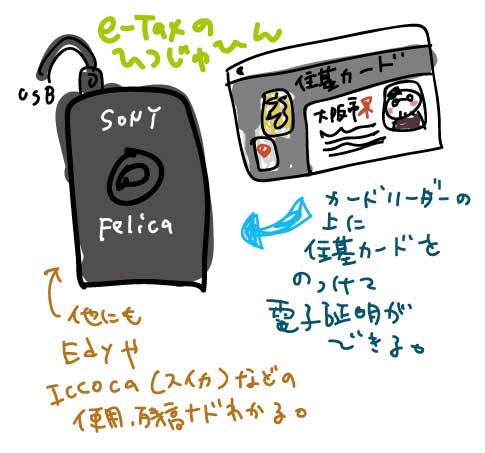 e-Taxの
ひつじゅひん
USB
SONY
Felica
住基カード
大阪市
カードリーダーの
上に
住基カードを
のっけて
電子証明が
できる。
他にも
Edyや
Iccoca(スイカ)などの
使用、残高ナドわかる。